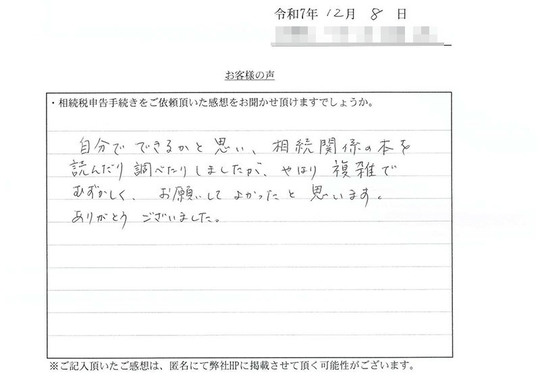 令和7年 12月 8 日
お客様の声
・相続税申告手続きをご依頼頂いた感想をお聞かせ頂けますでしょうか。
自分で できるかと思い、相続関係の本を
読んだり調べたりしましたが、やはり複雑で
むずかしく、お願いして よかったと思います。
ありがとう ございました。
※ご記入頂いたご感想は、匿名にて弊社HPに掲載させて頂く可能性がございます。